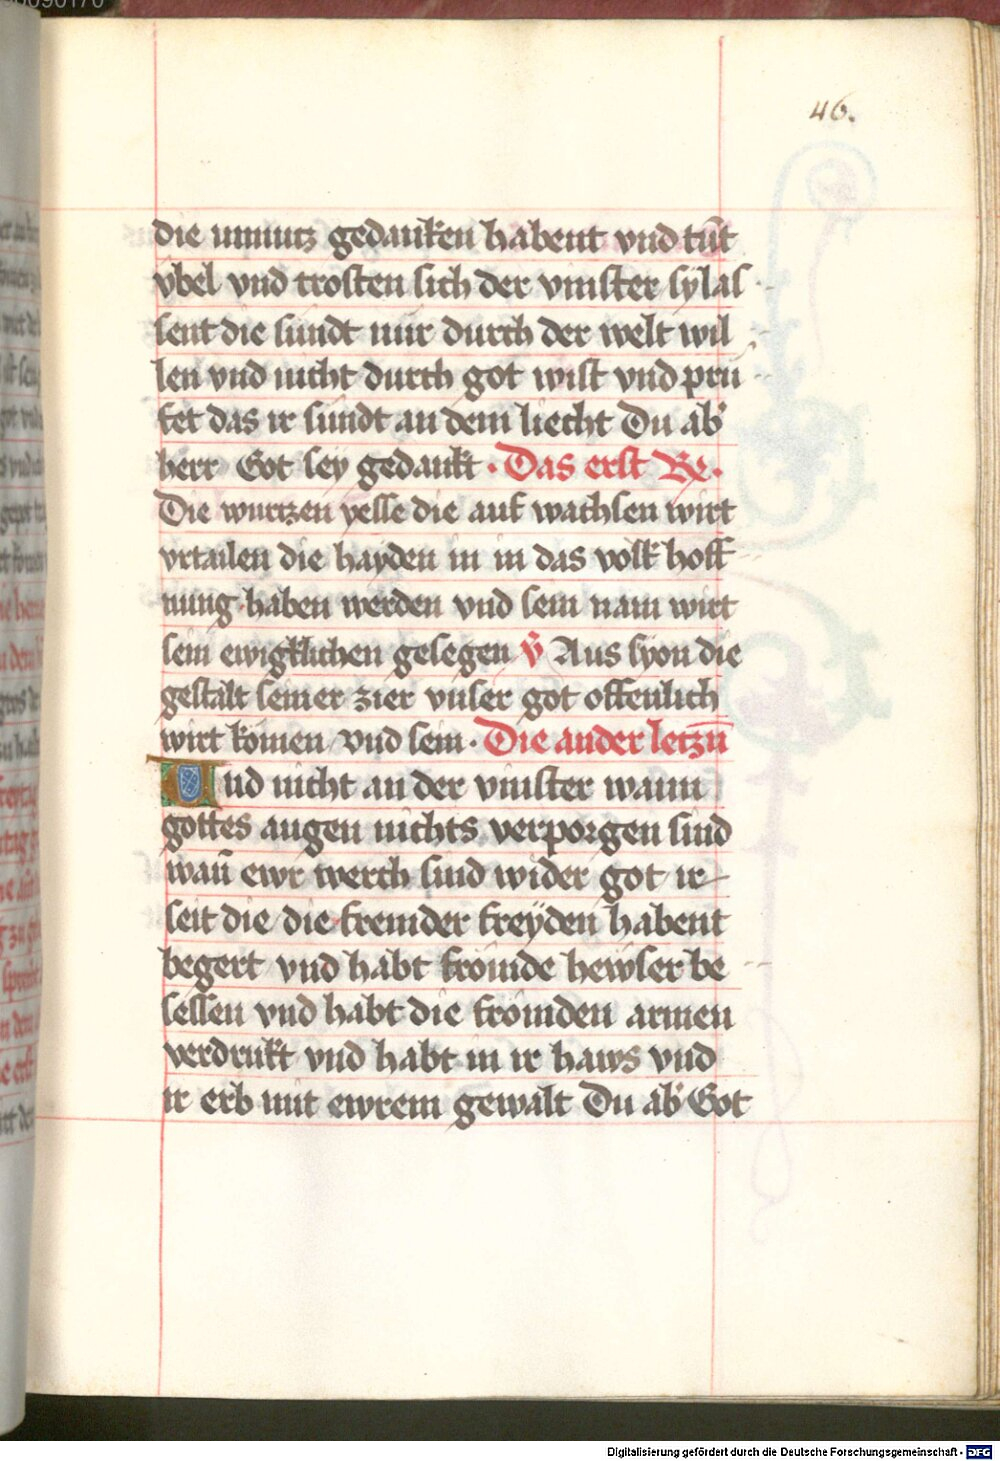 46.
die unnutz gedanken habent vnd tūt
vbel vnd trosten sich der vinster sy las
sent die sundt nur durch der welt wil
len vnd nicht durch got wist vnd pru
fet das ir sundt an dem liecht Du ab
herr Got sey gedankt · Das erst Re.
Die wurtzen yesse die auf wachsen wirt
vrtailen die hayden in in das volk hoff
nung haben werden vnd sein nam wirt
sein ewigklichen gesegen V Aus syon die
gestalt seiner zier vnser got offenlich
wirt komen vnd sein · Die ander letzū
Und nicht an der vinster wann
gottes augen nichts verporgen sind
wañ ewr werch sind wider got ir
seit die die fremder freyden habent
begert vnd habt frömde hewser be
sessen vnd habt die frömden armen
verdrukt vnd habt in ir haws vnd
ir erb mit ewrem gewalt Du ab Got
Digitalisierung gefördert durch die Deutsche Forschungsgemeinschaft - DFG